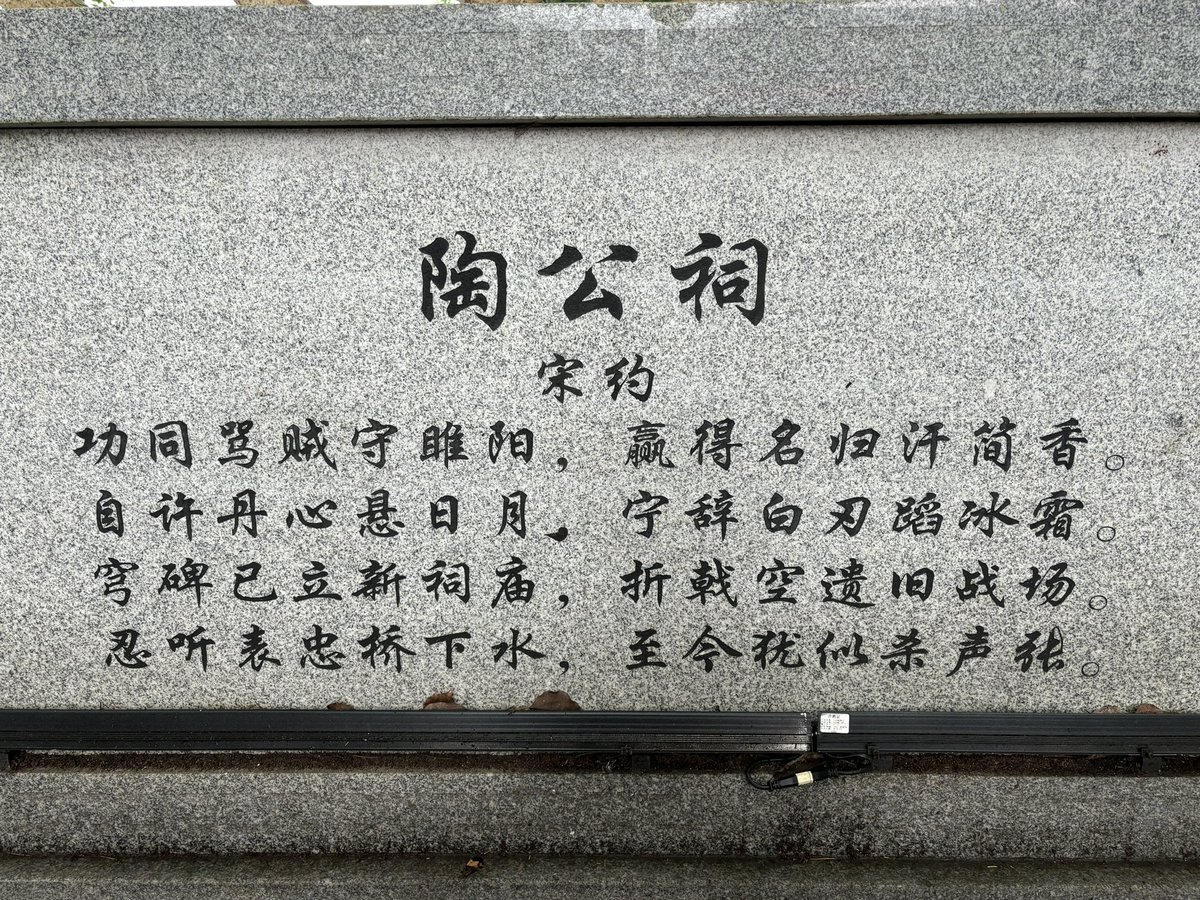 陶公祠
宋约
功同骂贼守睢阳，赢得名归汗简香。
自许丹心悬日月，宁辞白刃蹈冰霜。
穹碑已立新祠庙，折戟空遗旧战场。
忍听表忠桥下水，至今犹似杀声张。